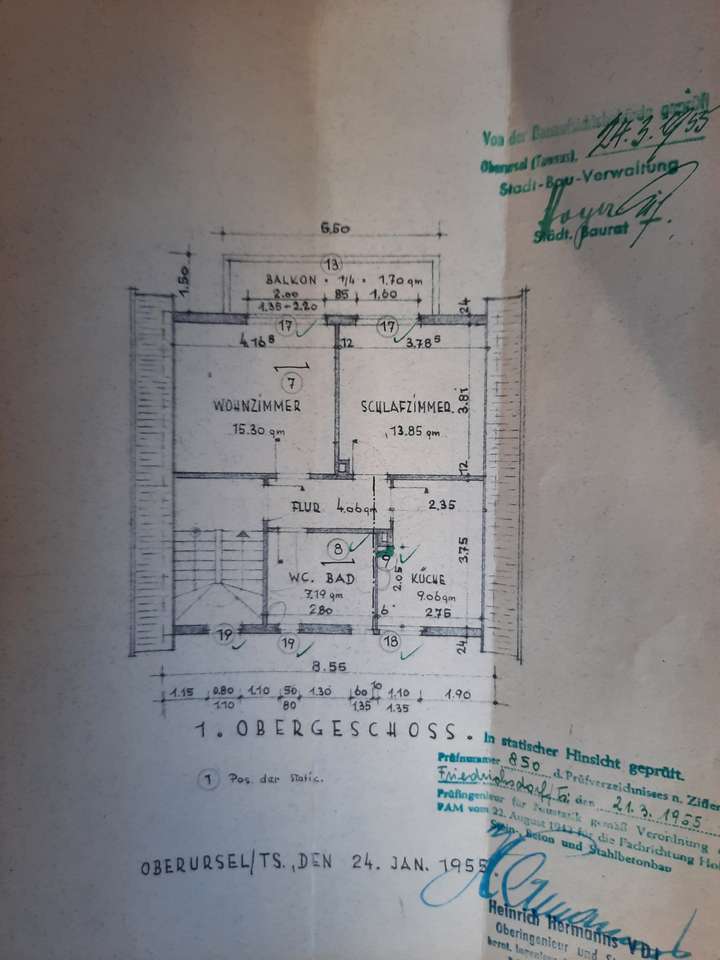 Von der Bauaufsichtsbehörde geprüft
Oberursel (Taunus), 24.3.1955
Stadt-Bau-Verwaltung
Städt. Baurat
6.50
13
1.50
BALKON · 1/4 · 1.70 qm
2.00 85 1.60
1.35-2.20
24
17 17
4.16⁵ 12 3.78⁵
7
WOHNZIMMER SCHLAFZIMMER
15.30 qm 13.85 qm
3.81
12
FLUR 4.06 qm 2.35
8 9
WC. BAD KÜCHE
7.19 qm 9.06 qm
2.05 3.75
2.80 6 2.75
19 19 18
24
8.55
1.15 0.80 1.10 50 1.30 60 10 1.10 1.90
1.10 80 1.35 1.35
1. OBERGESCHOSS.
1 Pos. der Static.
In statischer Hinsicht geprüft.
Prüfnummer 850 d. Prüfverzeichnisses n. Ziffer
Friedrichsdorf/Ts. den 21.3.1955
Prüfingenieur für Baustatik gemäß Verordnung
RAM vom 22. August 1942 für die Fachrichtung
Stein-, Beton und Stahlbetonbau
OBERURSEL/TS., DEN 24. JAN. 1955.
Heinrich Hermanns VDI
Oberingenieur und